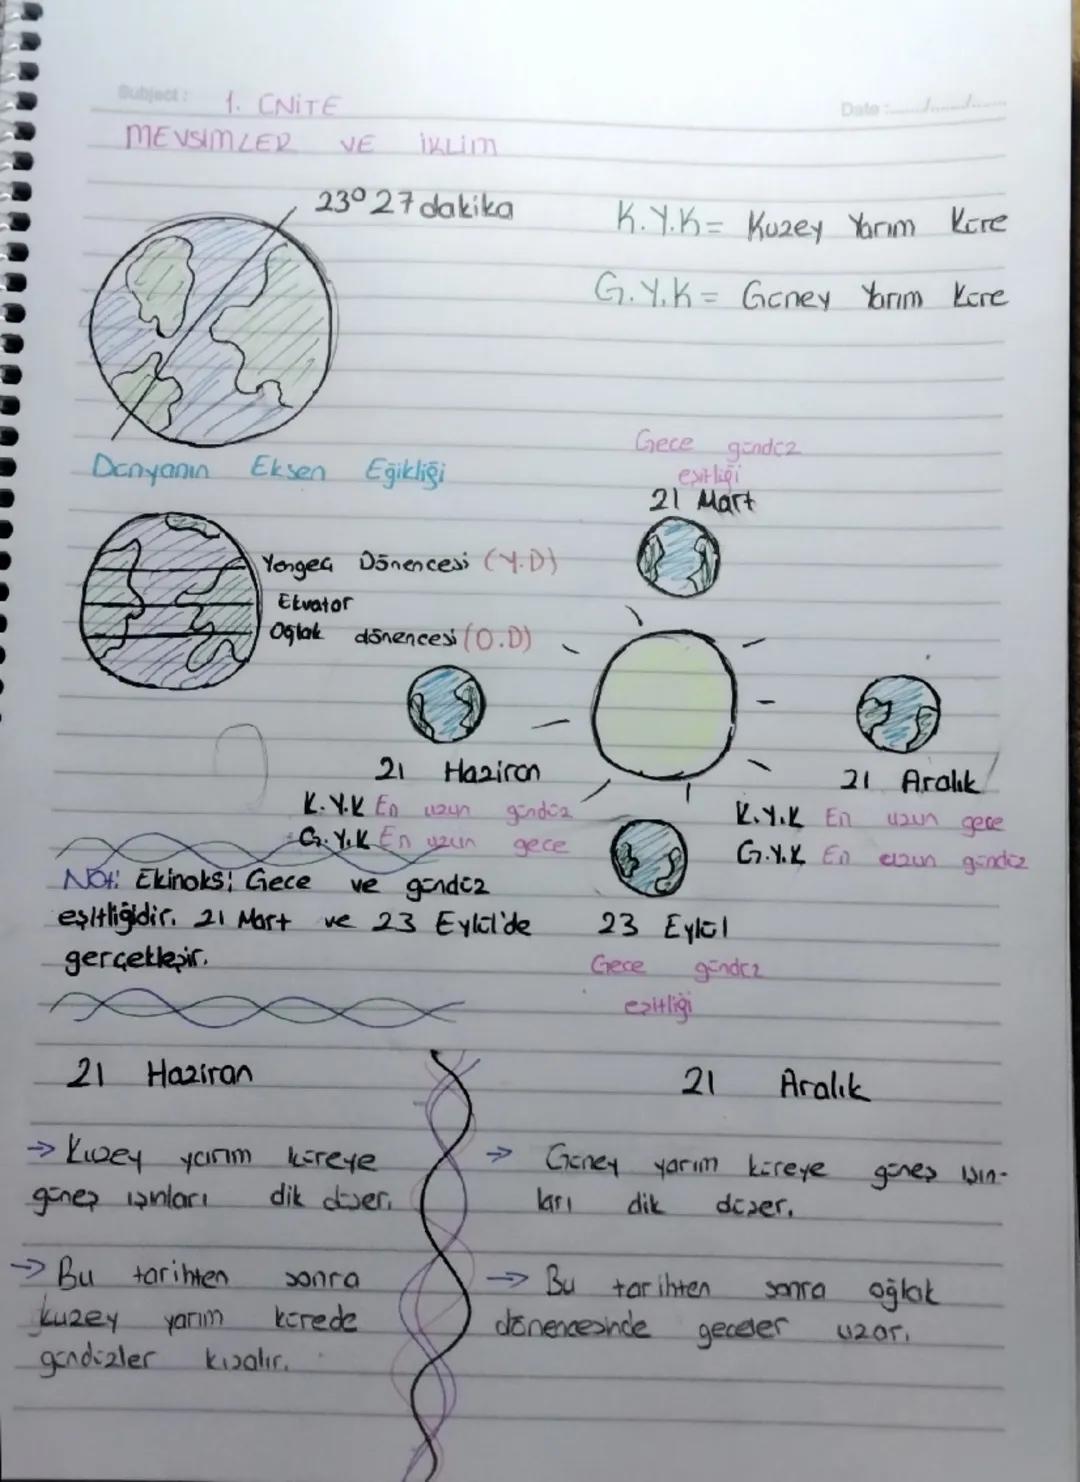 Subject:
Date:....../....../......
1. ÜNİTE
MEVSIMLER VE İKLİM
23° 27 dakika
K.Y.K = Kuzey Yarım Küre
G.Y.K = Güney Yarım Küre
Dünyanın Eksen Eğikliği
Gece gündüz
eşitliği
21 Mart
Yengeç Dönencesi (Y.D)
Ekvator
Oğlak dönencesi (O.D)
21 Haziran
K.Y.K En uzun gündüz
G.Y.K En uzun gece
21 Aralık
K.Y.K En uzun gece
G.Y.K En uzun gündüz
Not: Ekinoks; Gece ve gündüz
eşitliğidir. 21 Mart ve 23 Eylül'de
gerçekleşir.
23 Eylül
Gece gündüz
eşitliği
21 Haziran
→ Kuzey yarım küreye
güneş ışınları dik düşer.
→ Bu tarihten sonra
kuzey yarım kürede
gündüzler kısalır.
21 Aralık
→ Güney yarım küreye güneş ışın-
ları dik düşer.
→ Bu tarihten sonra oğlak
dönencesinde geceler uzar.